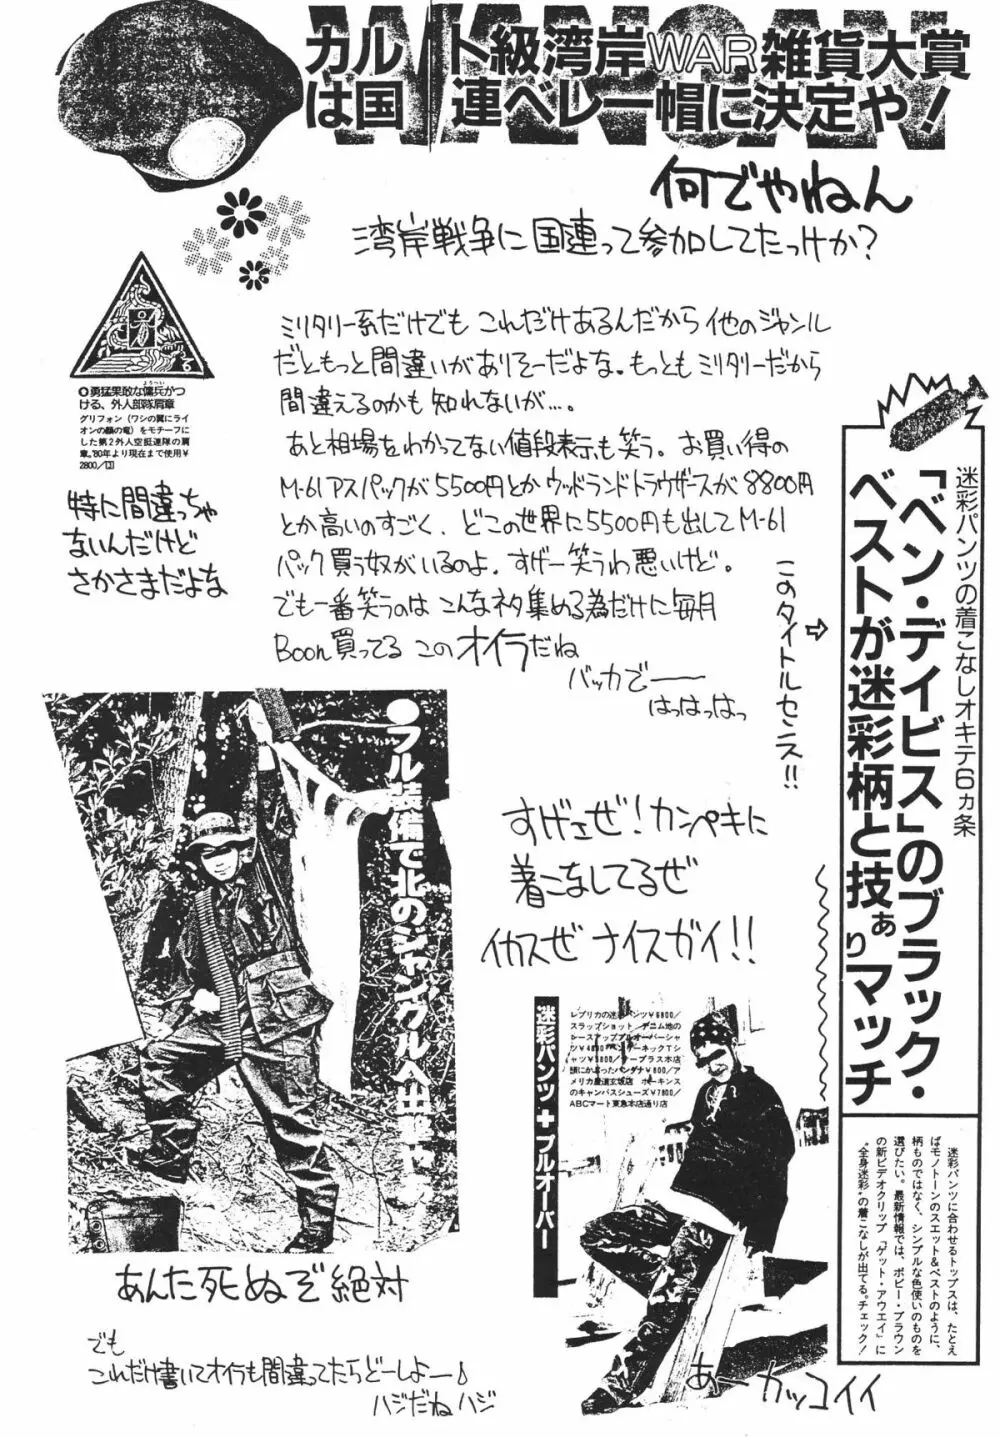 WANGAN
カルト級湾岸WAR雑貨大賞
は国連ベレー帽に決定や!
何でやねん
湾岸戦争に国連って参加してたっけか?
ミリタリー系だけでも これだけあるんだから 他のジャンル
だともっと間違いがありそーだよな。もっともミリタリーだから
間違えるのかも 知れないが…。
あと相場をわかってない値段表示も笑う。お買い得の
M-61アスパックが5500円とかウッドランドトラウザースが8800円
とか高いのすごく、どこの世界に5500円も出してM-61
パック買う奴がいるのよ。すげー笑うわ悪いけど。
でも一番笑うのは こんなネタ集める為だけに毎月
Boon買ってる このオイラだね
バッカでー
はっはっはっ
6
✪勇猛果敢な傭兵がつ
ようへい
ける、外人部隊肩章
グリフォン(ワシの翼にライ
オンの顔の竜)をモチーフに
した第2外人空挺連隊の肩
章。'80年より現在まで使用¥
2800/
特に間違っちゃ
ないんだけど
さかさまだよな
このタイトルセンス!!
⇨
迷彩パンツの着こなしオキテ6ヵ条
「ベン・デイビス」のブラック・
ベストが迷彩柄と技ありマッチ
迷彩パンツに合わせるトップスは、たとえ
ばモノトーンのスエット&ベストのように、
柄ものではなく、シンプルな色使いのものを
選びたい。最新情報では、ボビー・ブラウン
の新ビデオクリップ「ゲット・アウエイ」に
"全身迷彩"の着こなしが出てる。チェック!
●フル装備で北のジャングルへ出撃
あんた死ぬぞ絶対
すげェぜ!カンペキに
着こなしてるぜ
イカスぜ ナイスガイ!!
迷彩パンツ+プルオーバー
レプリカの迷彩パンツ¥6800/
スラップショット デニム地の
レースアッププルオーバーシャ
ツ¥4800 ヘンリーネックTシ
ャツ¥3800/ラープラス本店
頭にかぶったバンダナ¥800/ア
メリカ屋道玄坂店 ホーキンス
のキャンバスシューズ¥7800/
ABCマート東急本店通り店
あーカッコイイ
でも
これだけ書いてオイラも間違ってたらどーしよー♪
ハジだねハジ